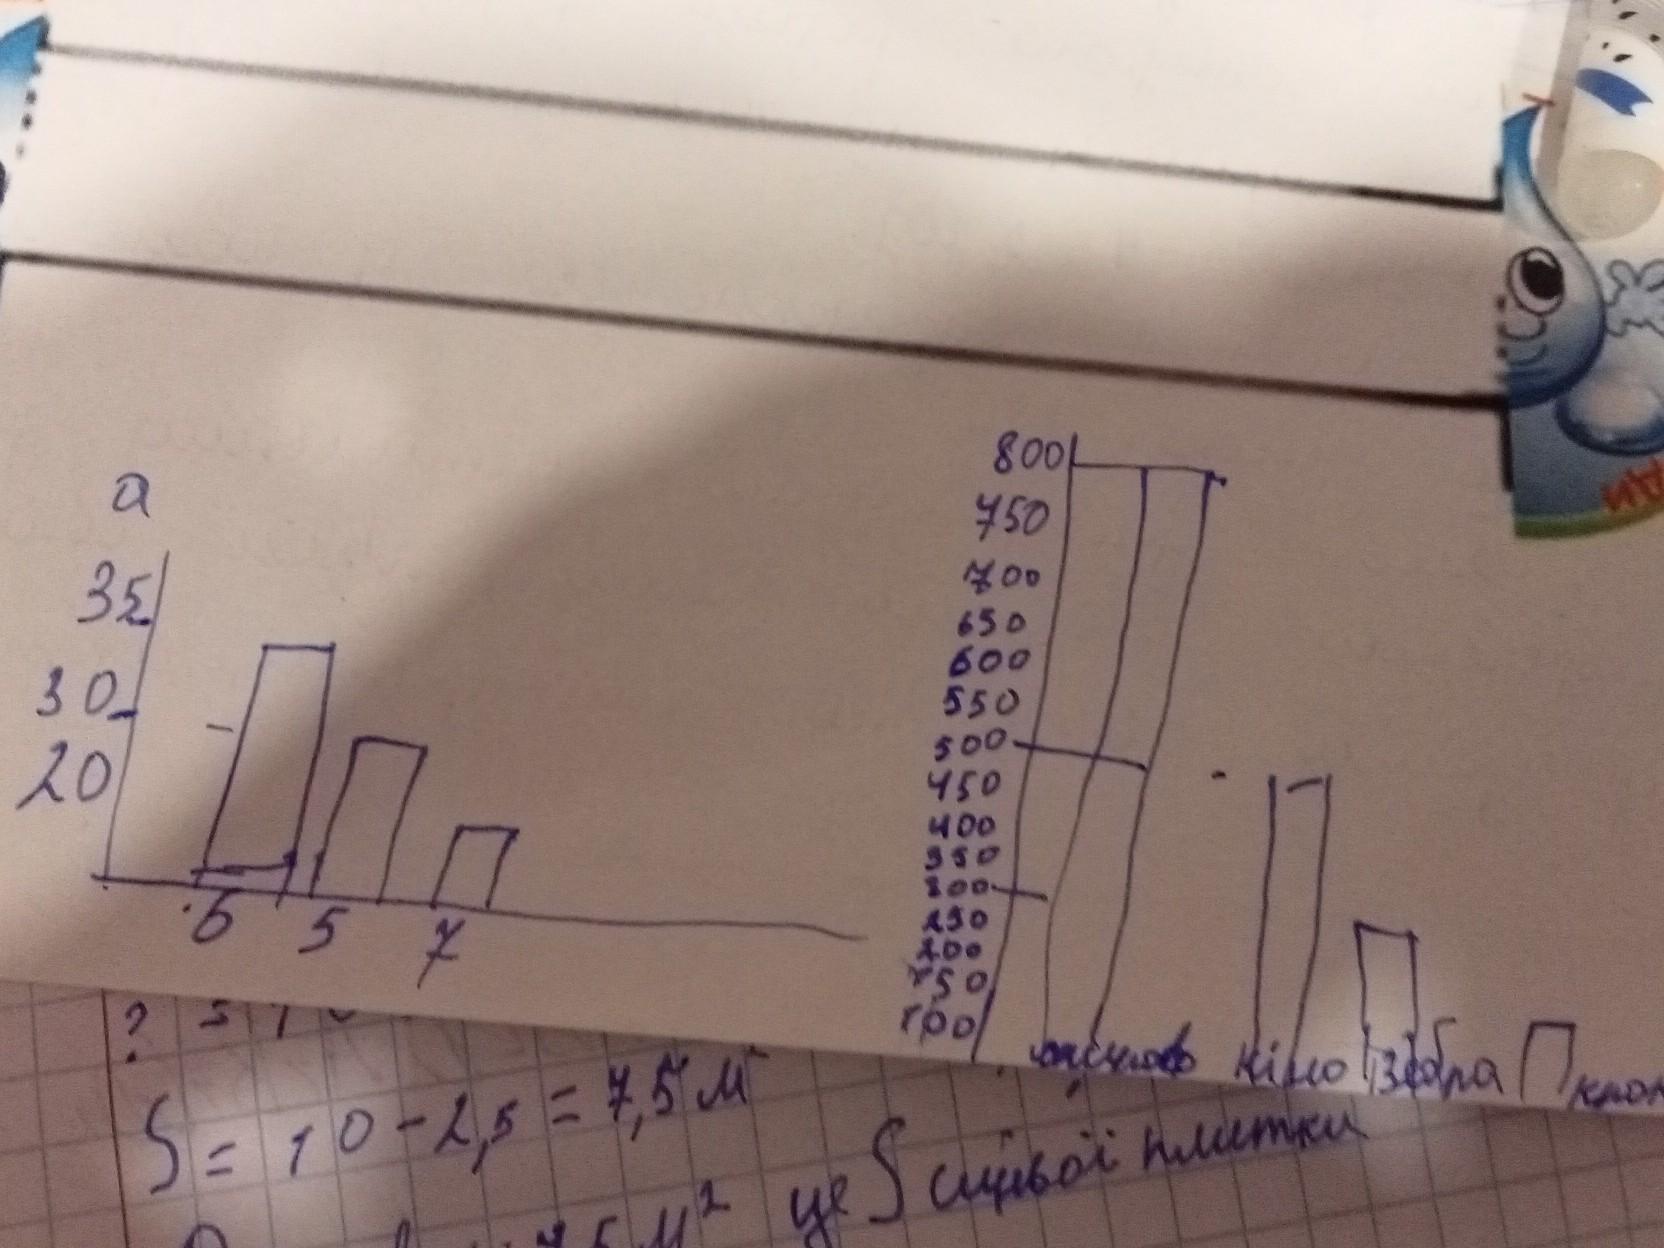 а
35
30
20
6 5 7
800
750
700
650
600
550
500
450
400
350
300
250
200
150
100
кіно зебра
S = 10 - 2,5 = 7,5 м
7,5 м² це S сірої плитки